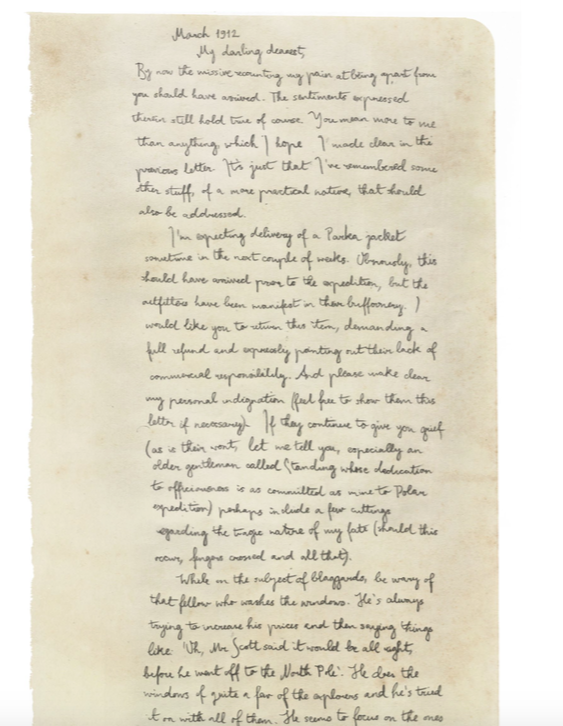 March 1912
My darling dearest,
By now the missive recounting my pain at being apart from
you should have arrived. The sentiments expressed
therein still hold true of course. You mean more to me
than anything which I hope I made clear in the
previous letter. It's just that I've remembered some
other stuff, of a more practical nature, that should
also be addressed.
I'm expecting delivery of a Parka jacket
sometime in the next couple of weeks. Obviously, this
should have arrived prior to the expedition, but the
outfitters have been manifest in their buffoonery. I
would like you to return this item, demanding a
full refund and expressly pointing out their lack of
commercial responsibility. And please make clear
my personal indignation (feel free to show them this
letter if necessary). If they continue to give you grief
(as is their wont, let me tell you, especially an
older gentleman called Standing whose dedication
to officiousness is as committed as mine to Polar
expedition) perhaps include a few cuttings
regarding the tragic nature of my fate (should this
occur, fingers crossed and all that).
While on the subject of blaggards, be wary of
that fellow who washes the windows. He's always
trying to increase his prices and then saying things
like 'Oh, Mr Scott said it would be all right,
before he went off to the North Pole'. He does the
windows of quite a few of the explorers and he's tried
it on with all of them. He seems to focus on the ones